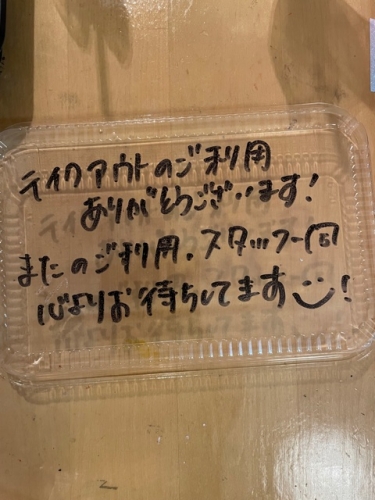 テイクアウトのご利用
ありがとうございます!
またのご利用、スタッフ一同
心よりお待ちしてます!